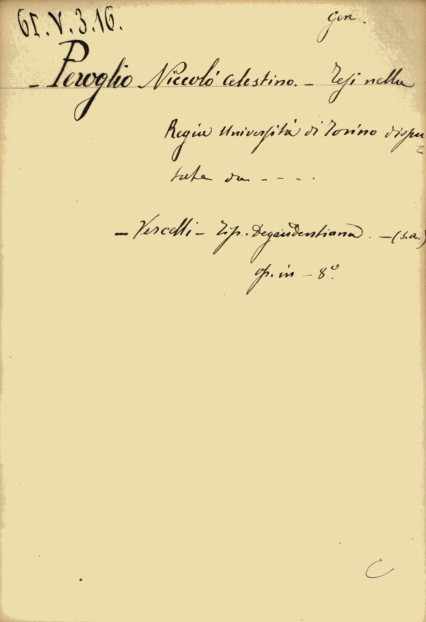 61.V.3.16.
Gen.
- Peroglio Niccolò Celestino. - Tesi nella
Regia Università di Torino dispu=
tate da - - - .
- Vercelli - Tip. Degaudentiana. - (s.a.)
op. in - 8°.
C